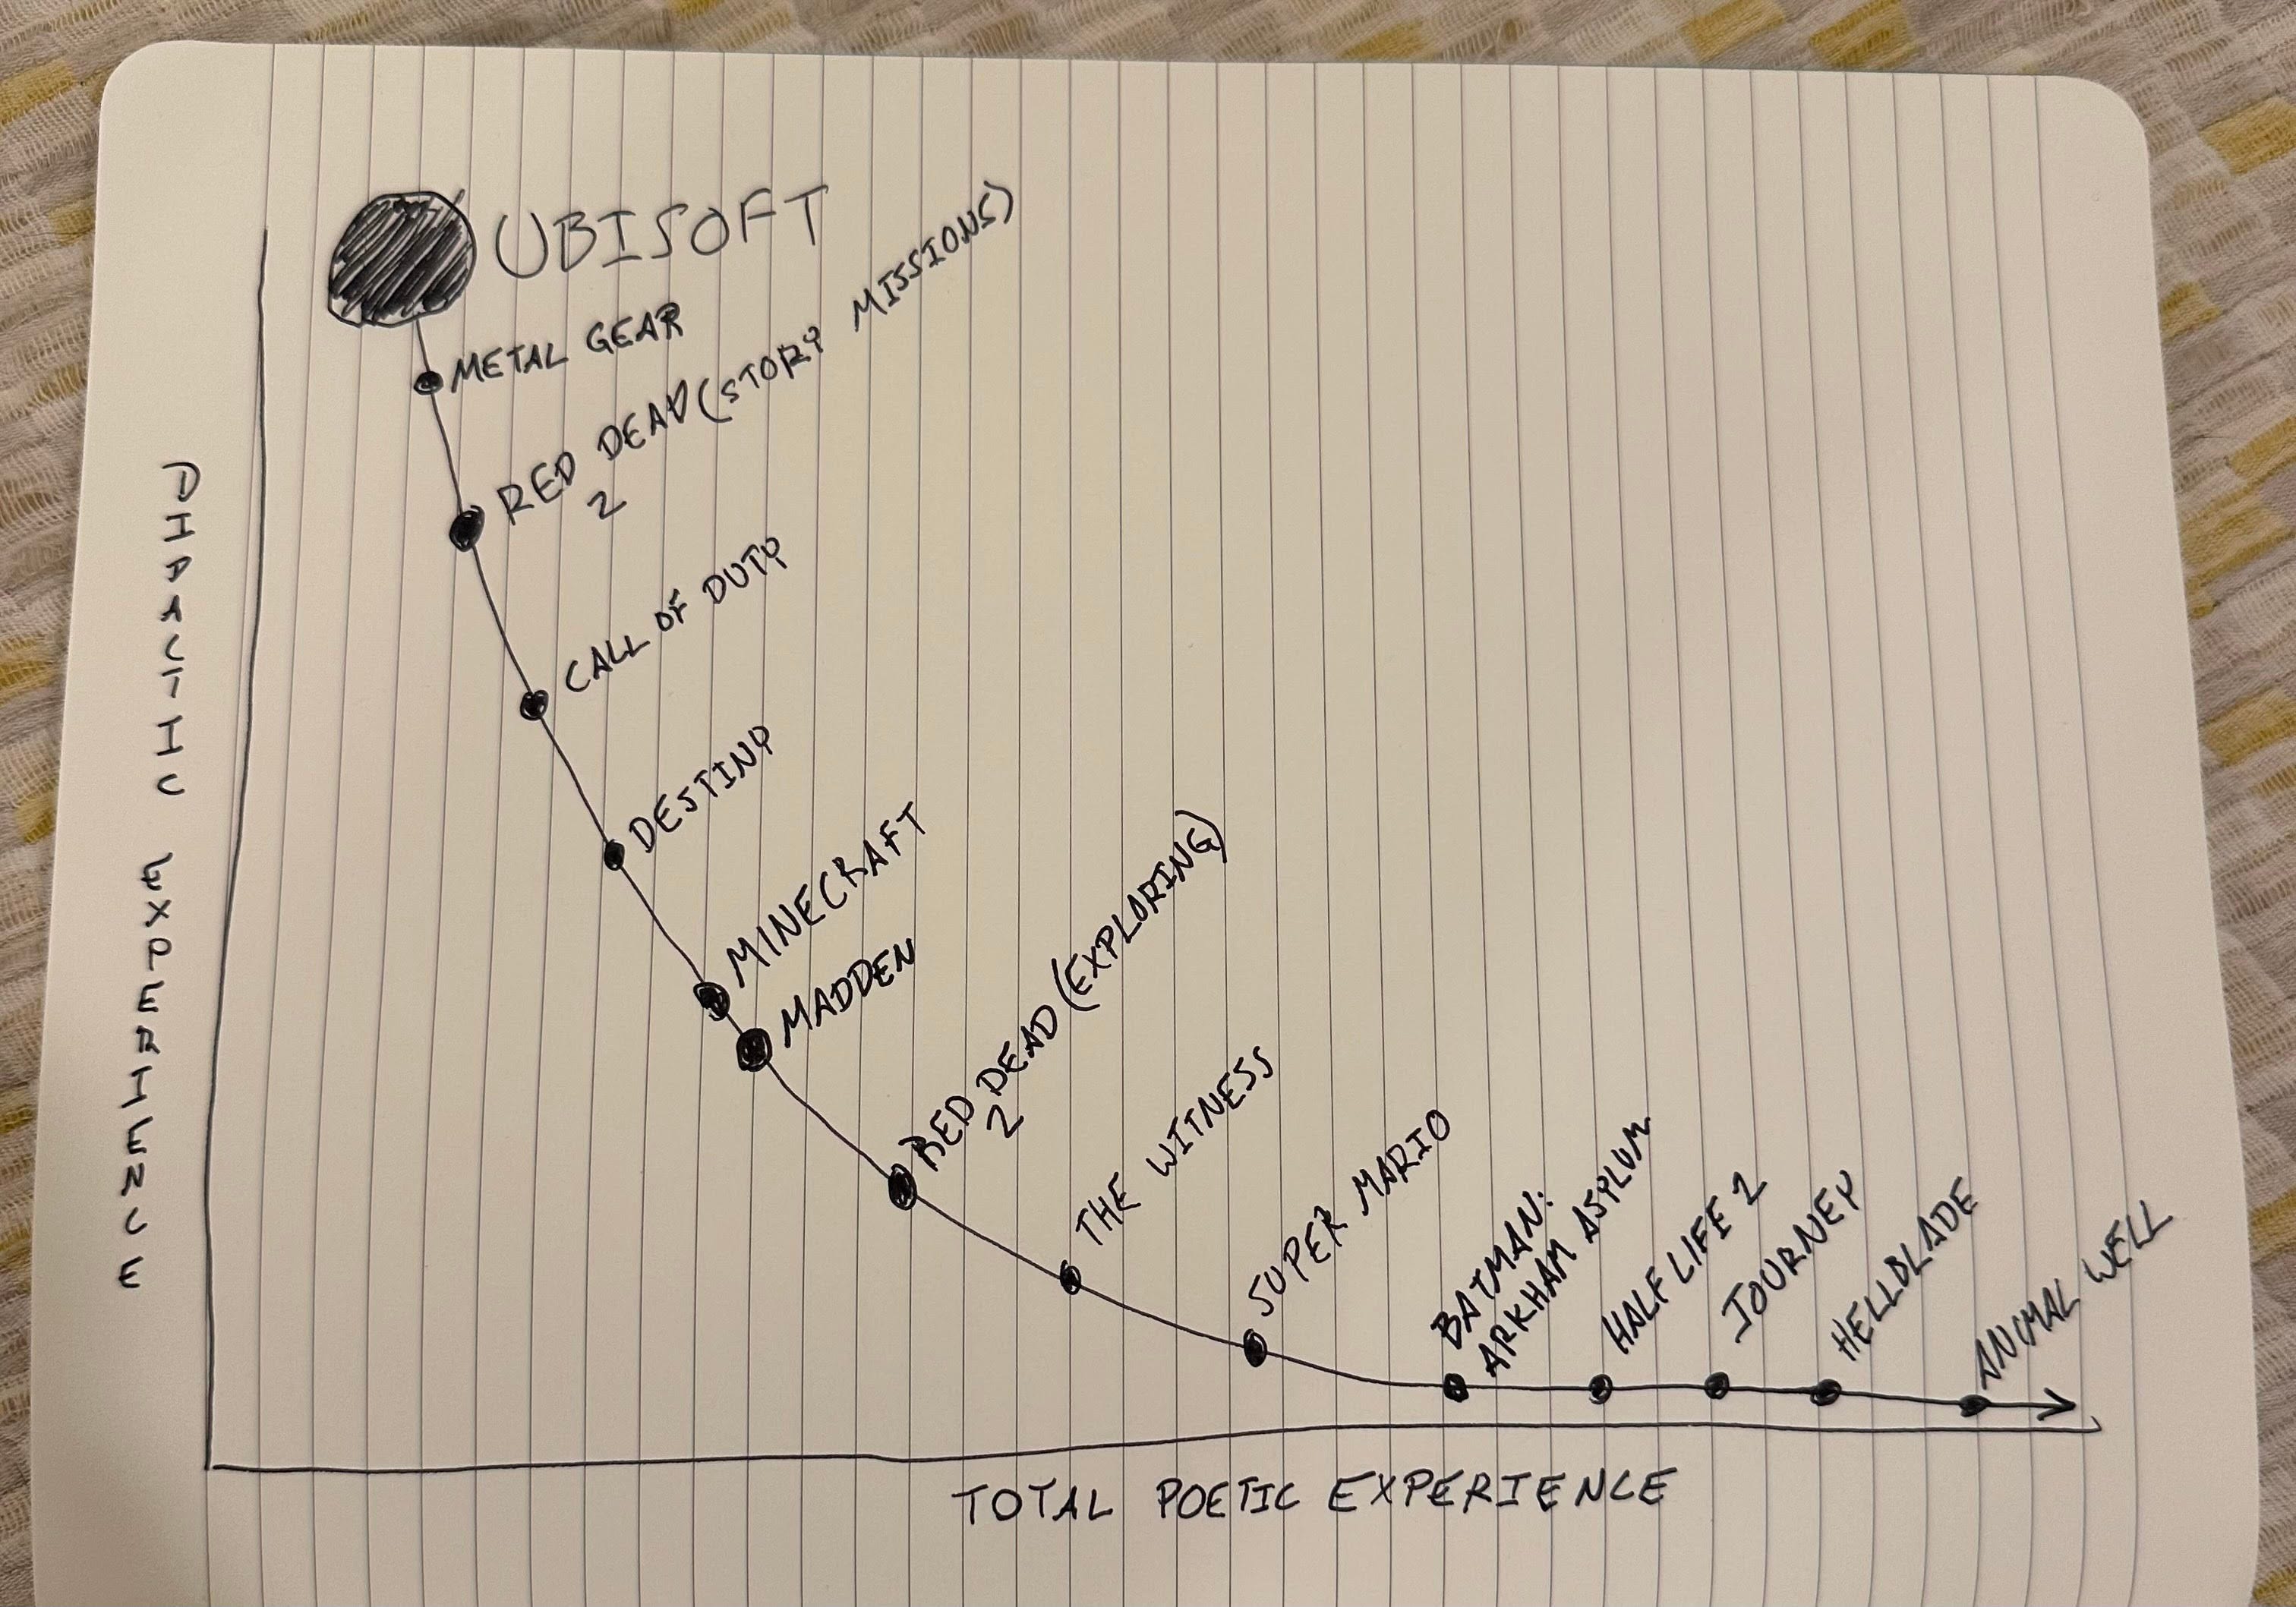 UBISOFT
METAL GEAR
RED DEAD (STORY MISSIONS)
2
CALL OF DUTY
DESTINY
MINECRAFT
MADDEN
RED DEAD (EXPLORING)
2
THE WITNESS
SUPER MARIO
BATMAN:
ARKHAM ASYLUM
HALF LIFE 2
JOURNEY
HELLBLADE
ANIMAL WELL
EXPERIENCE
TOTAL POETIC EXPERIENCE